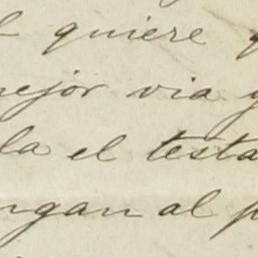 quiere
mejor via y
la el testa
ngan al p